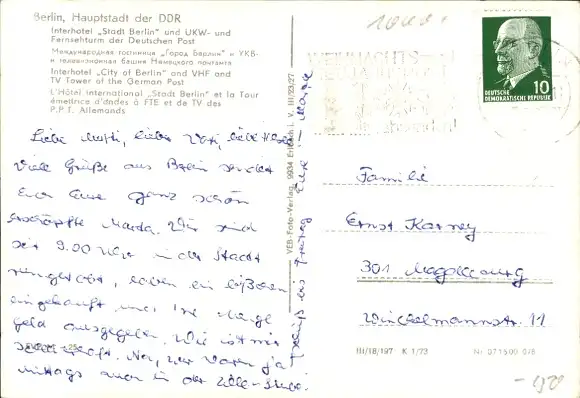 Berlin, Hauptstadt der DDR
Interhotel „Stadt Berlin" und UKW- und
Fernsehturm der Deutschen Post
Международная гостиница „Город Берлин" и УКВ-
и телевизионная башня Немецкого почтамта
Interhotel „City of Berlin" and VHF and
TV Tower of the German Post
L'Hôtel International „Stadt Berlin" et la Tour
émettrice d'ondes à FTE et de TV des
P.P.T. Allemands
Liebe Mutti, lieber Vati,
Viele Grüße aus Berlin sendet
Euch Eure ganz schön
erschöpfte Marda. Wir sind
seit 9.00 Uhr in der Stadt
rumgetobt, haben ein bißchen
eingekauft und ne Menge
Geld ausgegeben. Wie ist mir
schleierhaft. Na, wir waren ja
mittags auch in der Zille-Stube.
Tschüß bis Freitag Eure
VEB-Foto-Verlag, 9934 Erlbach i. V. III/23/27
10
DEUTSCHE
DEMOKRATISCHE REPUBLIK
Familie
Ernst Karney
301 Magdeburg
Winckelmannstr. 11
III/18/197 K 1/73 Nr 071500 0/6